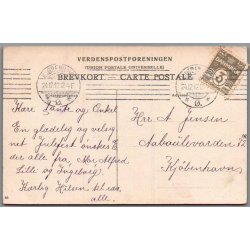 VERDENSPOSTFORENINGEN
(UNION POSTALE UNIVERSELLE)
BREVKORT. — CARTE POSTALE
24.12.12
Kære Tante og Onkel
En glædelig og velsig
net julefest ønskes E
der alle fra Mor Alfred
Lille og Ingeborg
Kærlig Hilsen til eder
alle.
Hr A Jensen
Kjøbenhavn
5